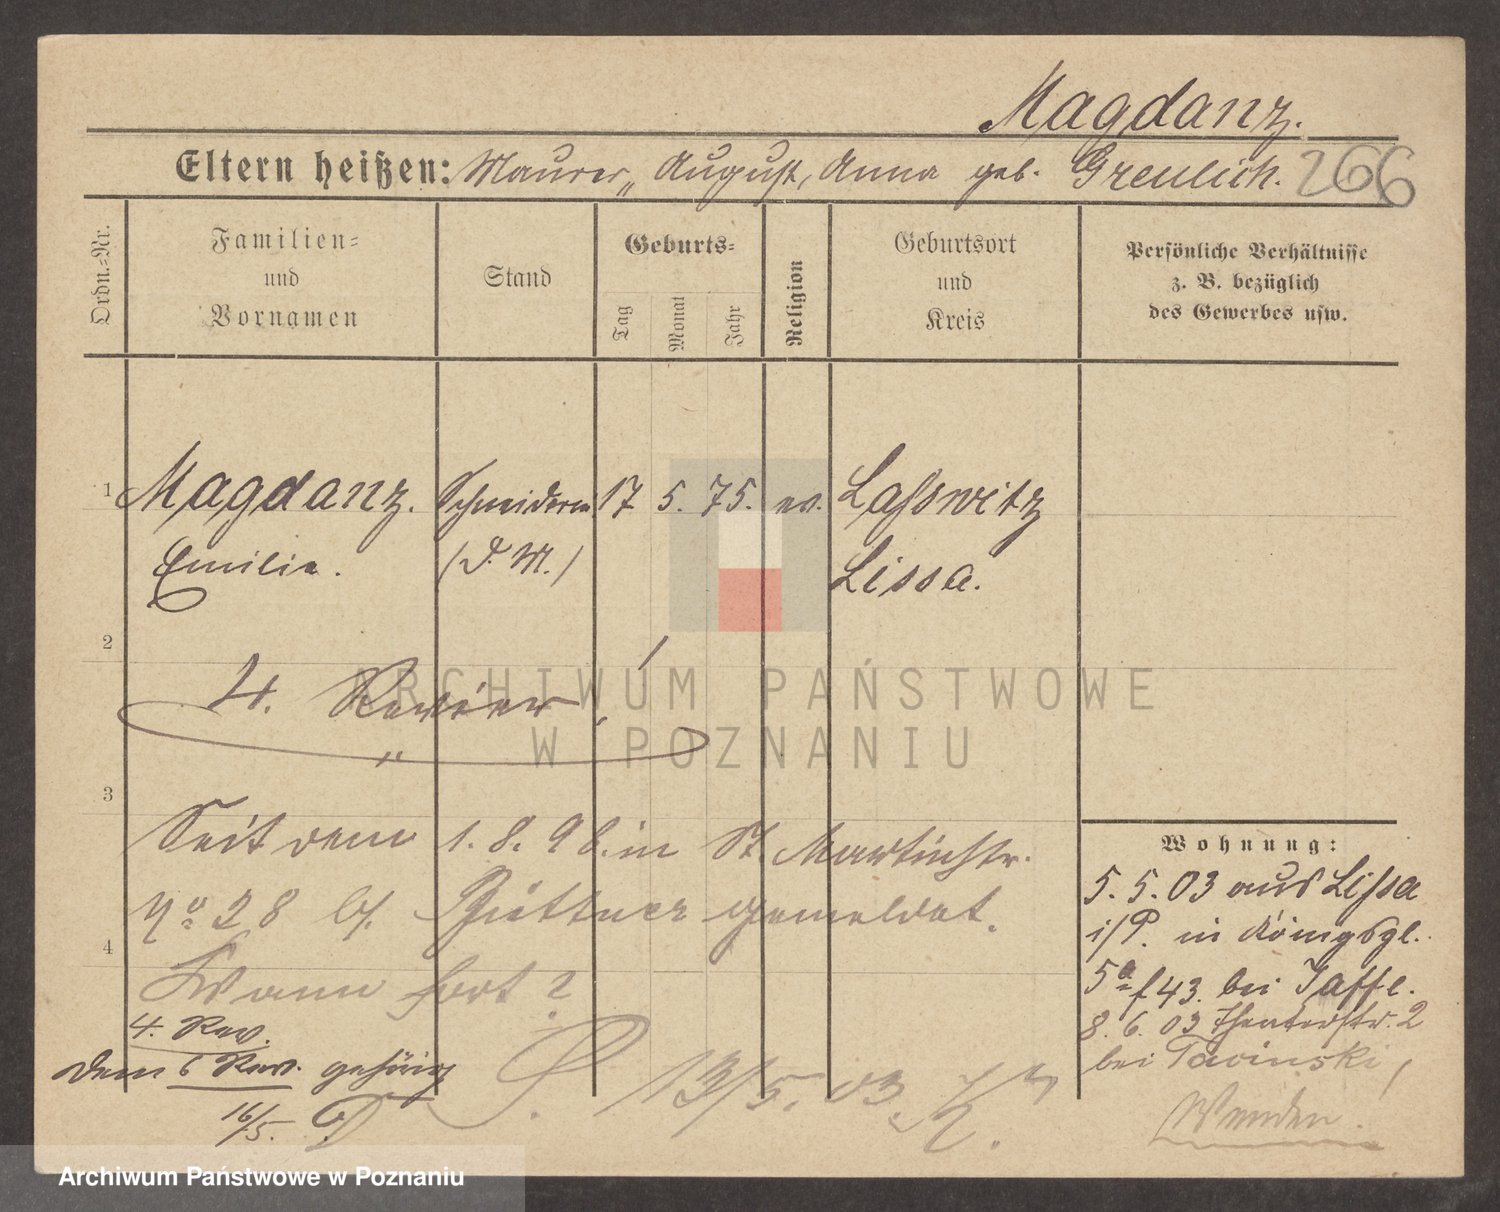 Magdanz.
Eltern heißen: Maurer„ August, Anna geb. Greulich. 266
Ordn.-Nr.
Familien-
und
Vornamen
Stand
Geburts-
Tag
Monat
Jahr
Religion
Geburtsort
und
Kreis
Persönliche Verhältnisse
z. B. bezüglich
des Gewerbes usw.
1 Magdanz. Schneiderin 17 5. 75. ev. Lasswitz
Emilie. (D. M.) Lissa.
2
4. Revier
ARCHIWUM PAŃSTWOWE
W POZNANIU
3
Seit dem 1. 8. 98. in St. Martinstr.
No 28 bei Püttner gemeldet.
4
Wann fort?
4. Rev.
dem 6 Rev. gehörig
16/5.
13/5. 03.
Wohnung:
5. 5. 03 aus Lissa
i/P. in Königspl.
5a f 43. bei Jaffe.
8. 6. 03 Theaterstr. 2
bei Tavinski,
Wenden.
Archiwum Państwowe w Poznaniu